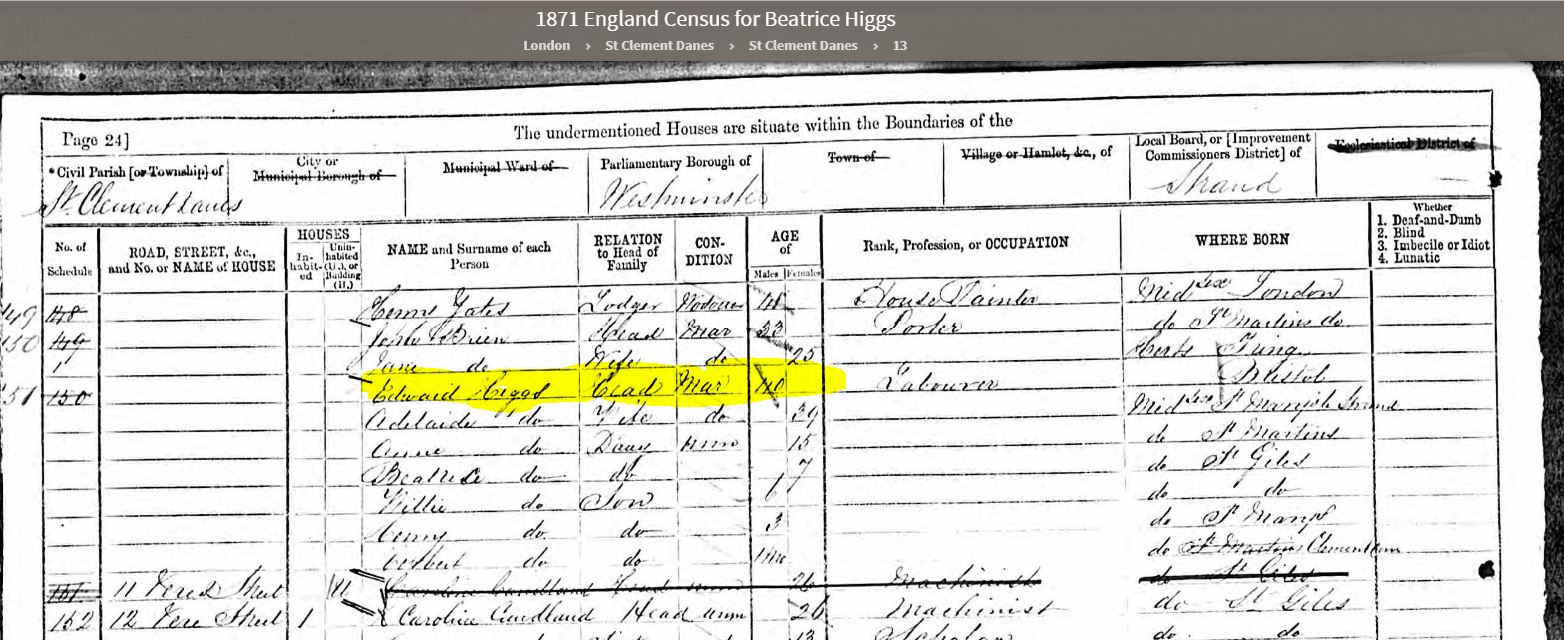 1871 England Census for Beatrice Higgs
London › St Clement Danes › St Clement Danes › 13
Page 24]
The undermentioned Houses are situate within the Boundaries of the
*Civil Parish [or Township] of
City or Municipal Borough of
Municipal Ward of
Parliamentary Borough of
Town of
Village or Hamlet, &c., of
Local Board, or [Improvement Commissioners District] of
Ecclesiastical District of
St. Clement Danes
Westminster
Strand
No. of Schedule
ROAD, STREET, &c., and No. or NAME of HOUSE
HOUSES
In-habit-ed
Unin-habited (U.), or Building (B.)
NAME and Surname of each Person
RELATION to Head of Family
CON-DITION
AGE of
Males Females
Rank, Profession, or OCCUPATION
WHERE BORN
Whether
1. Deaf-and-Dumb
2. Blind
3. Imbecile or Idiot
4. Lunatic
149 148 Henry Yates Lodger Widower House Painter Midsex London
150 149 John Brien Head Mar 33 Porter do St Martins do
Jane do Wife do 25 Herts Tring
151 150 Edward Higgs Head Mar 40 Labourer Bristol
Adelaide do Wife do 39 Midsex St Mary le Strand
Anne do Daur unm 15 do St Martins
Beatrice do do 7 do St Giles
Willie do Son 6 do do
Henry do do 3 do St Marys
do do do St Martins Clement
151 11 Vere Street Caroline Cundland Head unm 26 Machinist do St Giles
152 12 Vere Street 1 Caroline Cundland Head unm 26 Machinist do St Giles
13 Scholar do do